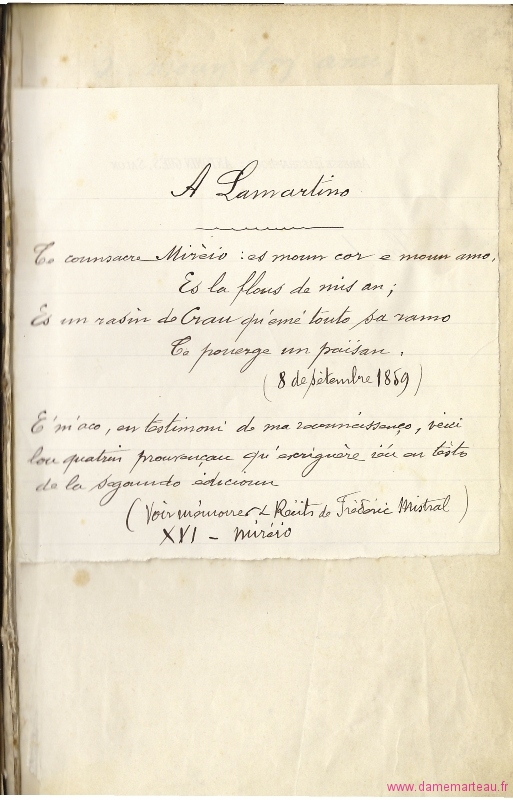 A Lamartino
Te counsacre Mirèio : es moun cor e moun amo,
Es la flour de mis an ;
Es un rasin de Crau qu'emé touto sa ramo
Te pouerge un païsan.
( 8 de sètembre 1859 )
E m'aco, en testimoni de ma reconneissenço, veici
lou quatrin prouvençau qu'escriguère iéu en tèsto
de la segoundo edicioun
( Voir mémoires & Récits de Frédéric Mistral )
XVI - Mirèio
www.damemarteau.fr